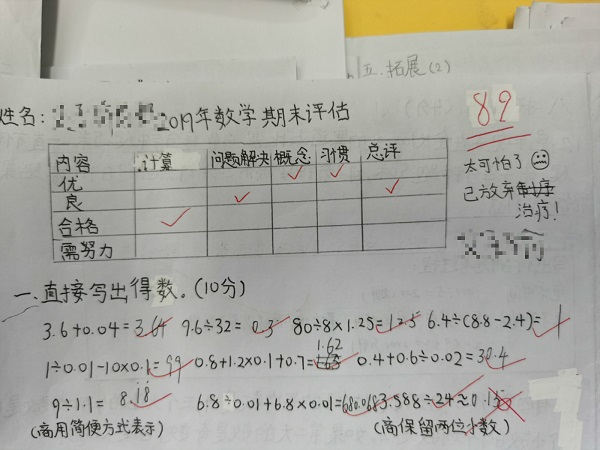 五.拓展(2)
姓名: 2019年数学期末评估
89
内容 计算 问题解决 概念 习惯 总评
优 ✓ ✓
良 ✓ ✓
合格 ✓
需努力
太可怕了☹
已放弃
治疗!
一.直接写出得数。(10分)
3.6+0.04=3.64 9.6÷32=0.3 80÷8×1.25=12.5 6.4÷(8.8-2.4)=1
1÷0.01-10×0.1=99 0.8+1.2×0.1+0.7=1.62 0.4+0.6÷0.02=30.4
9÷1.1=8.1̇8̇ 6.8÷0.01+6.8×0.01=680.068 3.588÷24≈0.15
(商用简便方式表示) (商保留两位小数)